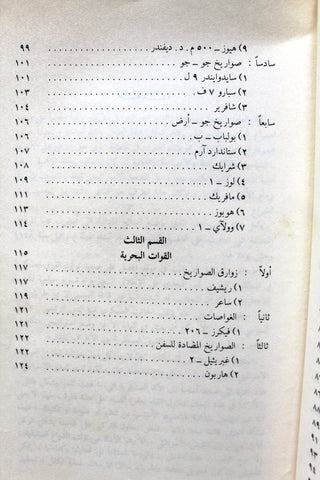 ٩) هيوز ــ ٥٠٠ م. د. ديفندر ............ ٩٩
سادساً : صواريخ جو ــ جو ............ ١٠١
١) سايدوايندر ٩ ل ............ ١٠١
٢) سبارو ٧ ف. ............ ١٠٣
٣) شافرير ............ ١٠٤
سابعاً : صواريخ جو ــ أرض ............ ١٠٦
١) بولباب ــ ب. ............ ١٠٦
٢) ستاندارد آرم ............ ١٠٧
٣) شرايك ............ ١٠٨
٤) لوز ــ ١ ............ ١٠٩
٥) مافريك ............ ١١١
٦) هوبوز ............ ١١٣
٧) وولآي ــ ١ ............ ١١٤
القسم الثالث
القوات البحرية ١١٥
أولاً : زوارق الصواريخ ............ ١١٧
١) ريشيف ............ ١١٧
٢) ساعر ............ ١١٩
ثانياً : الغواصات ............ ١٢١
١) فيكرز ــ ٢٠٦ ............ ١٢١
ثالثاً : الصواريخ المضادة للسفن ............ ١٢٢
١) غبرييل ــ ٢ ............ ١٢٢
٢) هاربون ............ ١٢٤